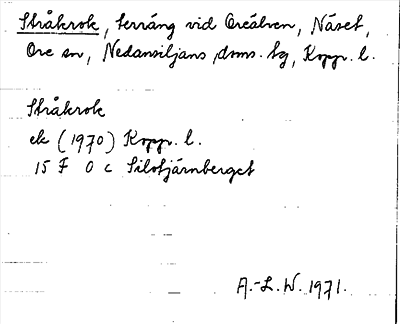 Stråkrok, terräng vid Oreälven, Näset,
Ore sn, Nedansiljans doms. tg, Kopp. l.
Stråkrok
ek (1970) Kopp. l.
15 F 0 c Silotjärnberget
A.-L. W. 1971.